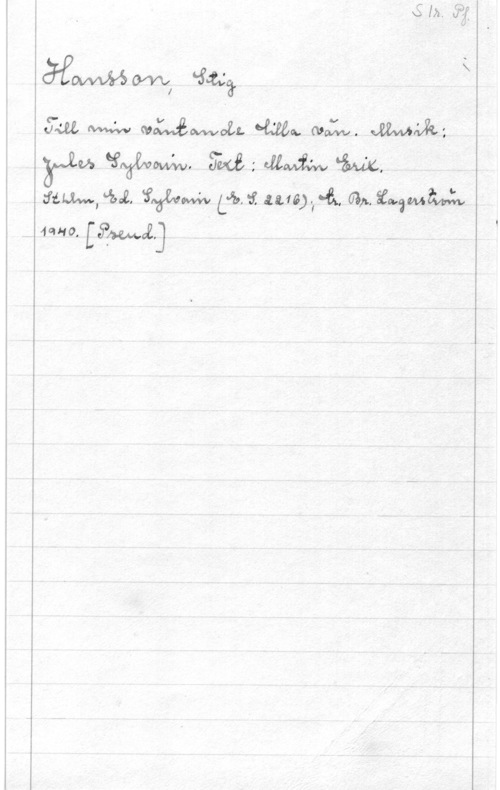 S 1r. Pf.
Hansson, Stig
Till min väntande lilla vän. Musik:
Jules Sylvain. Text: Martin Erik.
Sthlm, Ed. Sylvain (E. S. 2216); tr. Br. Lagerström
1940. [Pseud.]